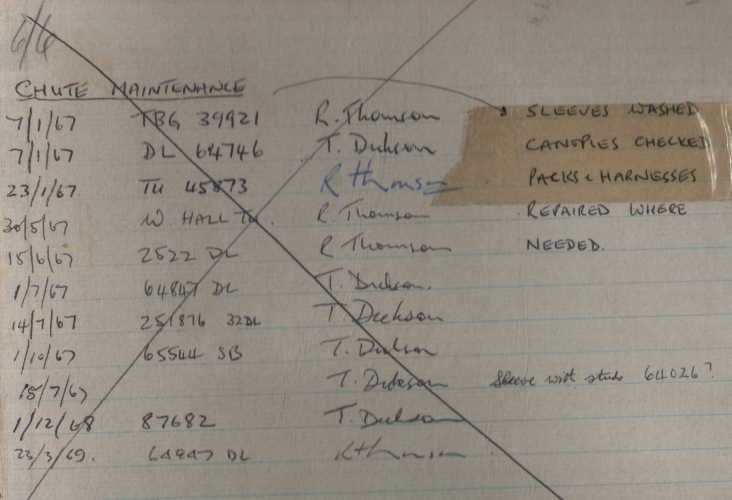 6/6
CHUTE MAINTENANCE
7/1/67 TBG 39921 R. Thomson SLEEVES WASHED
7/1/67 DL 64746 T. Dickson CANOPIES CHECKED
23/1/67. TU 45873 R Thomson PACKS & HARNESSES
30/5/67 W HALL TU. R. Thomson REPAIRED WHERE
15/6/67 2522 DL R Thomson NEEDED.
1/7/67 64847 DL T. Dickson.
14/7/67 251876 32DL T. Dickson
1/10/67 65544 SB T. Dickson
15/7/67 T. Dickson Sleeve with studs 640267.
1/12/68 87682 T. Dickson
23/3/69. 64847 DL R Thomson